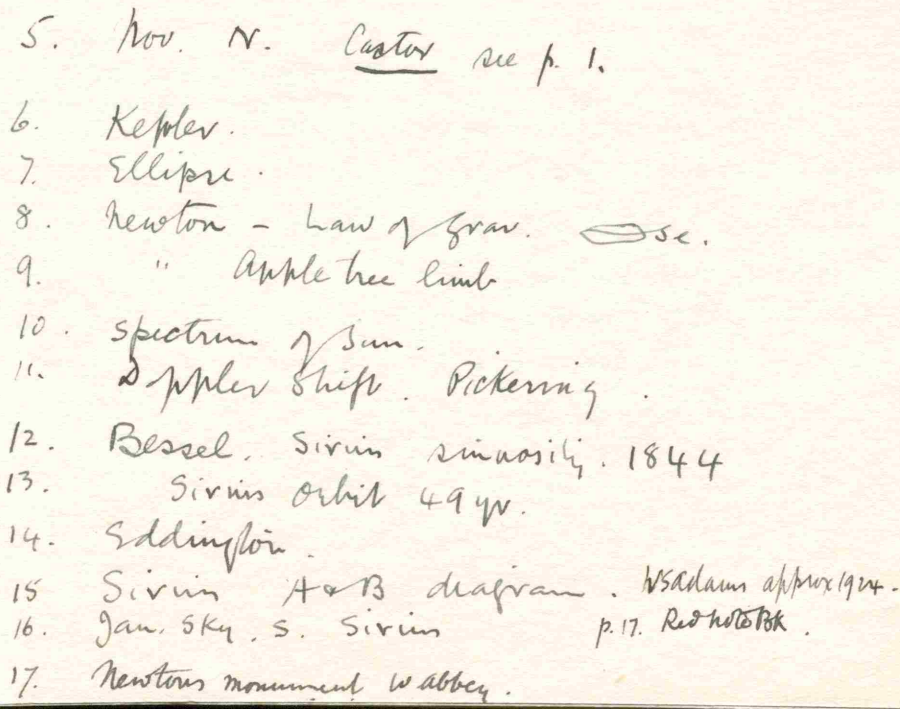 5. Nov. N. Castor see p. 1.
6. Kepler.
7. Ellipse.
8. Newton - Law of Grav. se.
9. " Apple tree limb
10. Spectrum of Sun.
11. Doppler Shift. Pickering.
12. Bessel. Sirius sinuosity. 1844
13. Sirius Orbit 49 yr.
14. Eddington.
15 Sirius A & B diagram. WSAdams approx 1924.
16. Jan. Sky. S. Sirius p.17. Red note Bk.
17. Newtons monument W abbey.